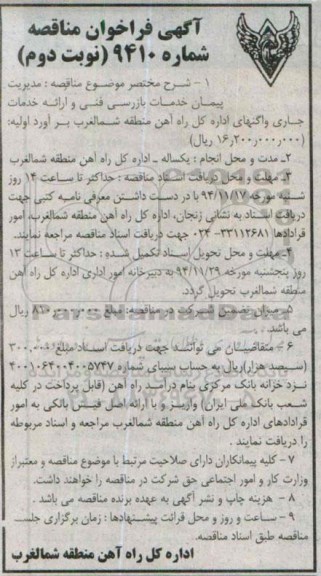 آگهی فراخوان مناقصه
شماره ۹۴۱۰ (نوبت دوم)
۱ - شرح مختصر موضوع مناقصه : مدیریت
پیمان خدمات بازرسی فنی و ارائه خدمات
جاری واگنهای اداره کل راه آهن منطقه شمالغرب بر آورد اولیه:
(۱۶٫۲۰۰٫۰۰۰٫۰۰۰ ریال)
۲ـ مدت و محل انجام : یکساله ـ اداره کل راه آهن منطقه شمالغرب
۳ـ مهلت و محل دریافت اسناد مناقصه : حداکثر تا ساعت ۱۴ روز
شنبه مورخه ۹۴/۱۱/۱۷ با در دست داشتن معرفی نامه کتبی جهت
دریافت اسناد به نشانی زنجان، اداره کل راه آهن منطقه شمالغرب، امور
قراردادها ۳۳۱۱۲۶۸۱- ۰۲۴ جهت دریافت اسناد مناقصه مراجعه نمایند.
۴ـ مهلت و محل تحویل اسناد تکمیل شده : حداکثر تا ساعت ۱۳
روز پنجشنبه مورخه ۹۴/۱۱/۲۹ به دبیرخانه امور اداری اداره کل راه آهن
منطقه شمالغرب تحویل گردد.
۵ـ میزان تضمین شرکت در مناقصه: مبلغ ریال
می باشد .
۶ - متقاضیان می توانند جهت دریافت اسناد مبلغ ۳۰۰٫۰۰۰
(سیصد هزار)ریال به حساب سیبای شماره
نزد خزانه بانک مرکزی بنام درآمد راه آهن (قابل پرداخت در کلیه
شعب بانک ملی ایران) واریز و با ارائه اصل فیش بانکی به امور
قراردادهای اداره کل راه آهن منطقه شمالغرب مراجعه و اسناد مربوطه
را دریافت نمایند .
۷ - کلیه پیمانکاران دارای صلاحیت مرتبط با موضوع مناقصه و معتبر از
وزارت کار و امور اجتماعی حق شرکت در مناقصه را خواهند داشت.
۸ - هزینه چاپ و نشر آگهی به عهده برنده مناقصه می باشد .
۹ - ساعت و روز و محل قرائت پیشنهادها : زمان برگزاری جلسه
مناقصه طبق اسناد مناقصه.
اداره کل راه آهن منطقه شمالغرب